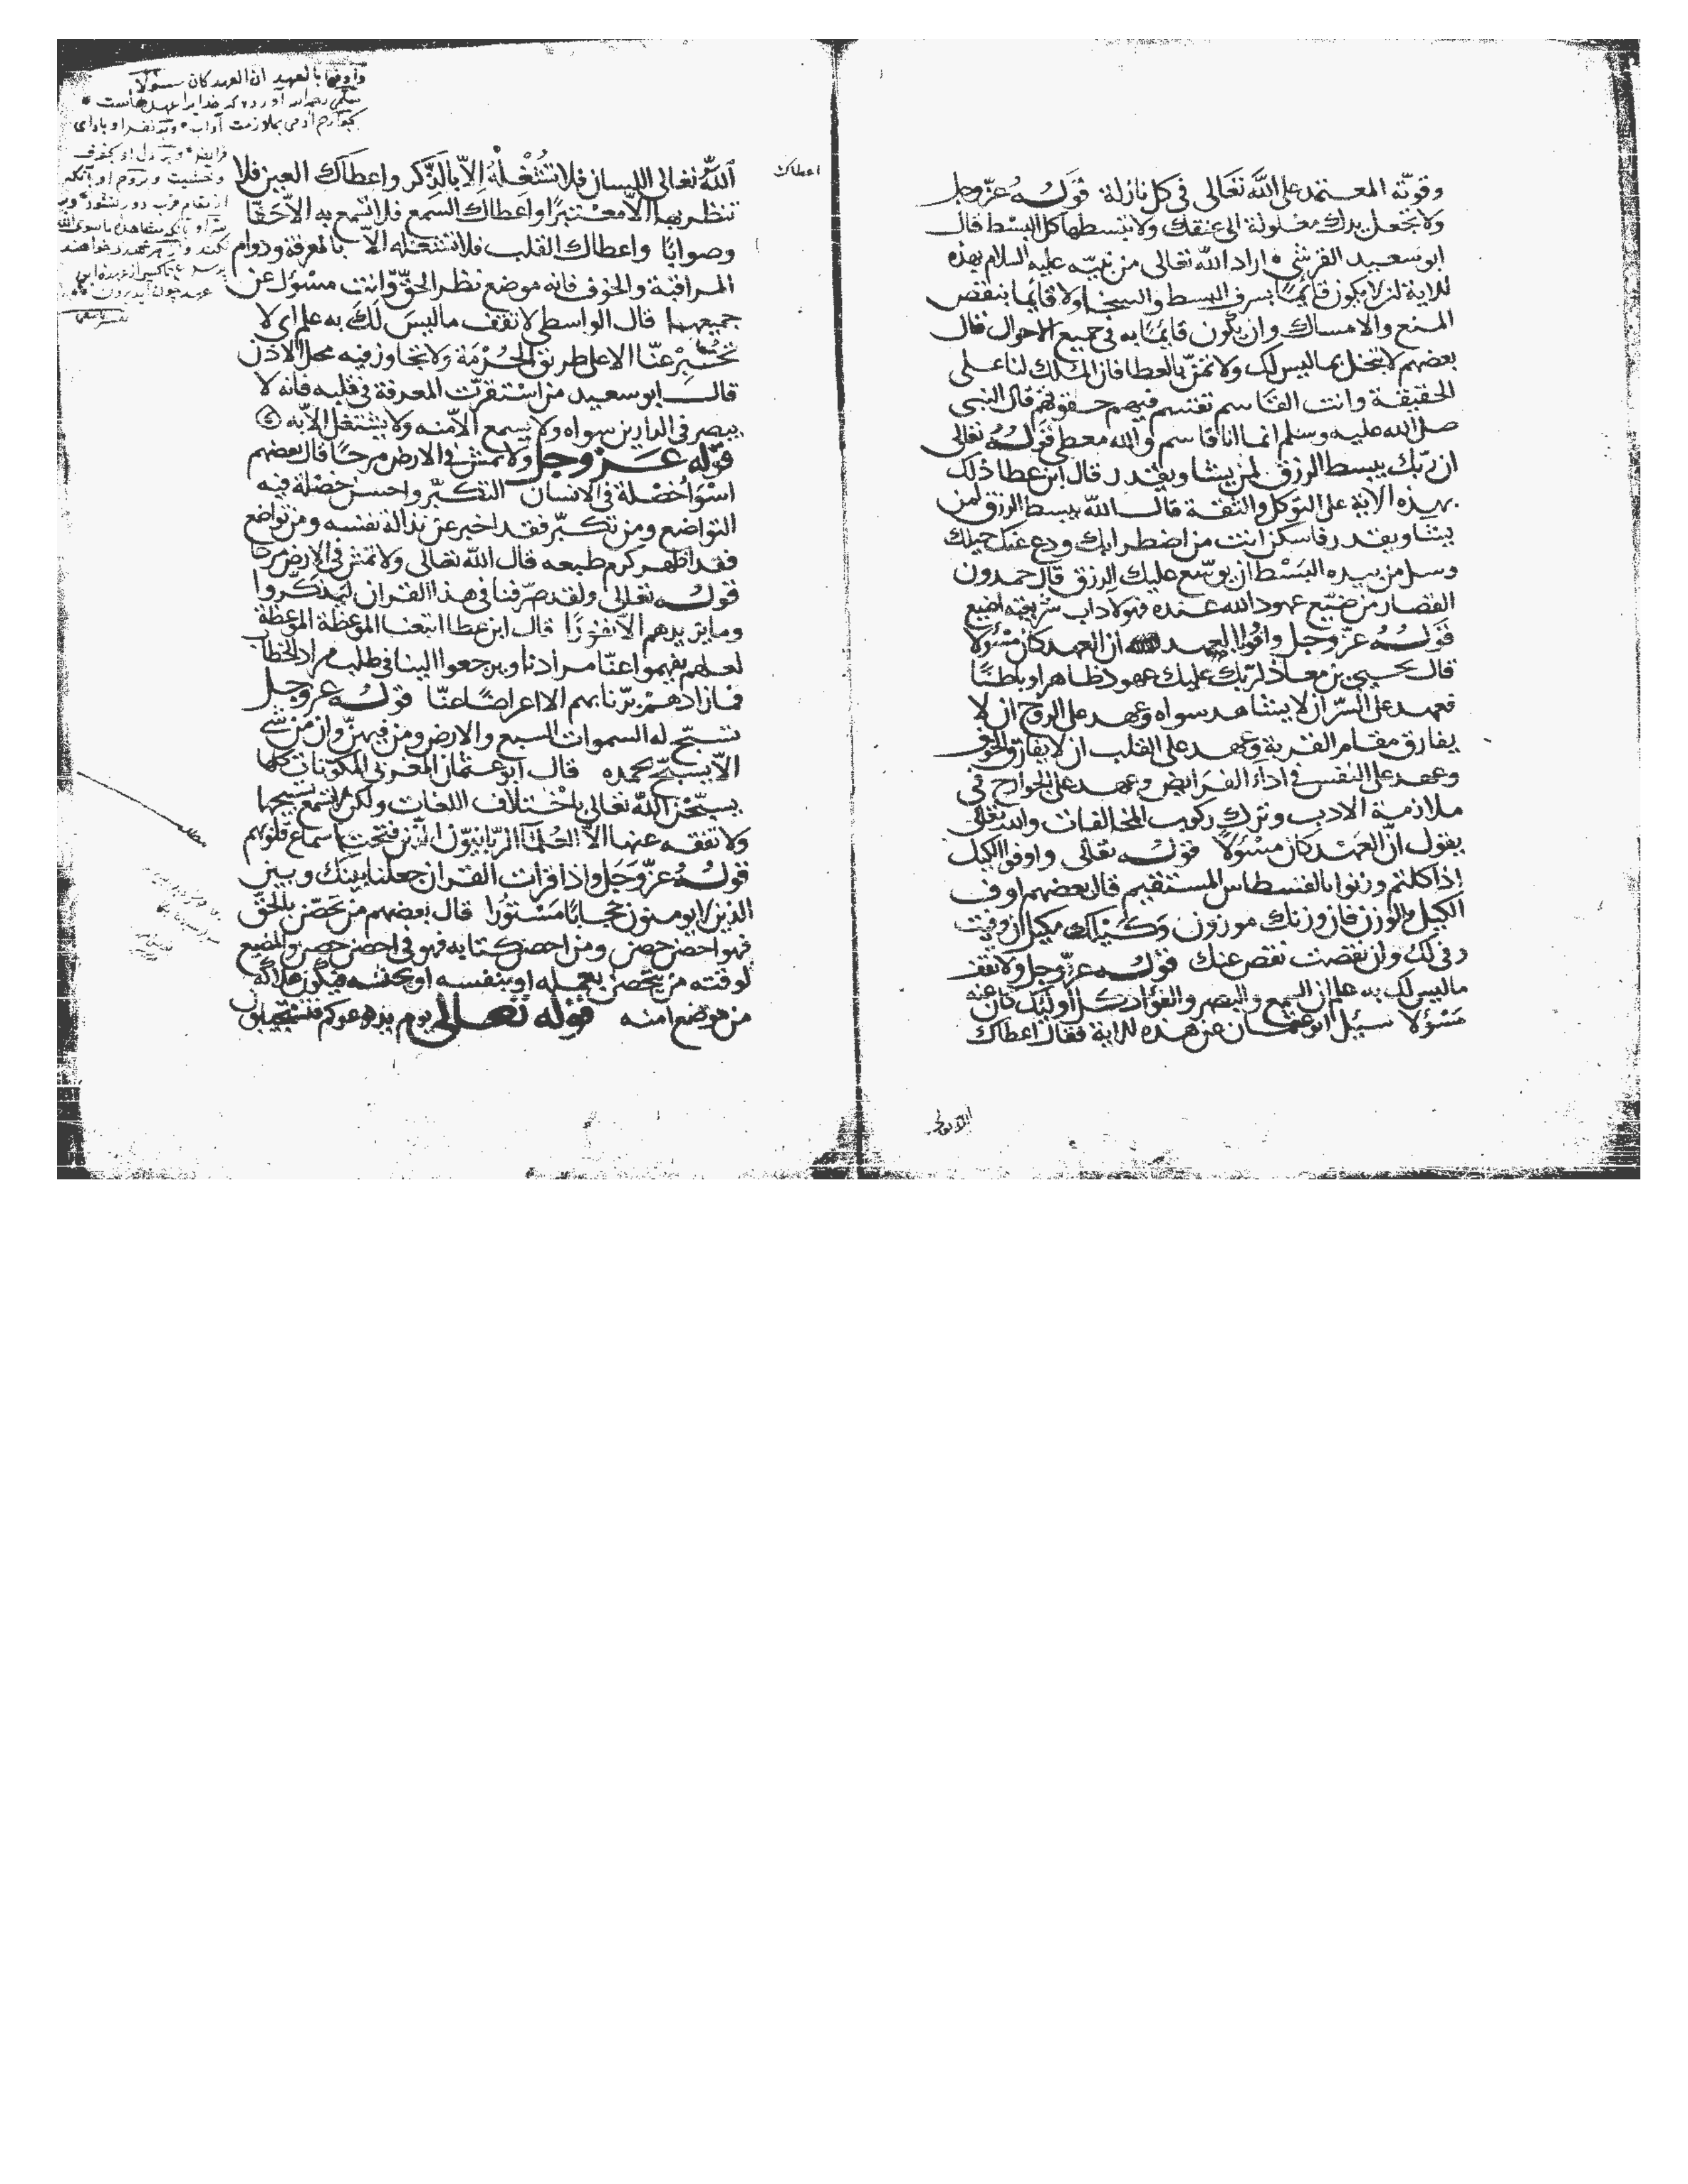 وقوته المعتمد على الله تعالى في كل نازلة قوله عز وجل
ولا تجعل يدك مغلولة الى عنقك ولا تبسطها كل البسط قال
ابو سعيد القرشي اراد الله تعالى من نبيه عليه السلام بهذه
الاية ان لا يكون قائما بسرف البسط والسخا ولا قائما بنقص
المنع والامساك وان يكون قائما به في جميع الاحوال قال
بعضهم لا تبخل بما ليس لك ولا تمنّ بالعطا فان الملك لنا على
الحقيقة وانت القاسم تقسم فيهم حقوقهم قال النبي
صلى الله عليه وسلم انما انا قاسم والله معطي قوله تعالى
ان ربّك يبسط الرزق لمن يشا ويقدر قال ابن عطا ذلك
بهذه الاية على التوكل والثقة قال الله يبسط الرزق لمن
يشا ويقدر فاسكن انت من اضطرابك ودع عنك حيلك
وسل من بيده البسط ان يوسّع عليك الرزق قال حمدون
القصار من ضيّع عهود الله عنده فهو لاداب شريعته اضيع
قوله عزّ وجل واوفوا بالعهد ان العهد كان مسؤلا
قال يحيى بن معاذ لربّك عليك عهود ظاهرا وباطنا
فعهد على السرّ ان لا يشاهد سواه وعهد على الروح ان لا
يفارق مقام القربة وعهد على القلب ان لا يفارق الخوف
وعهد على النفس في اداء الفرايض وعهد على الجوارح في
ملازمة الادب وترك ركوب المخالفات والله تعالى
يقول انّ العهد كان مسؤلا قوله تعالى واوفوا الكيل
اذا كلتم وزنوا بالقسطاس المستقيم قال بعضهم اوف
الكيل والوزن فان وزنك موزون وكيلك مكيل ان وفيت
وفي لك وان نقصت نقص عنك قوله عزّ وجل ولا تقف
ما ليس لك به علم ان السمع والبصر والفؤاد كل اولئك كان عنه
مسؤلا سئل ابو عثمان عن هذه الاية فقال اعطاك
اعطاك
الله تعالى اللسان فلا تشغله الاّ بالذّكر واعطاك العين فلا
تنظر بها الاّ معتبرا واعطاك السمع فلا تسمع به الاّ حقّا
وصوابا واعطاك القلب فلا تشغله الاّ بالمعرفة ودوام
المراقبة والخوف فانه موضع نظر الحقّ وانت مسؤل عن
جميعها قال الواسطي لا تقف ما ليس لك به علم اى لا
تخبر عنّا الا على طريق الحرمة ولا تجاوز فيه محل الاذن
قال ابو سعيد من استقرّت المعرفة في قلبه فانه لا
يبصر في الدارين سواه ولا يسمع الاّ منه ولا يشتغل الاّ به
قوله عز وجل ولا تمش في الارض مرحا قال بعضهم
اسوا خصلة في الانسان التكبّر واحسن خصلة فيه
التواضع ومن تكبّر فقد اخبر عن نذالة نفسه ومن تواضع
فقد اظهر كرم طبعه قال الله تعالى ولا تمش في الارض مرحا
قوله تعالى ولقد صرّفنا في هذا القران ليذكّروا
وما يزيدهم الاّ نفورًا قال ابن عطا اتبعنا الموعظة الموعظة
لعلهم يفهموا عنّا مرادنا ويرجعوا الينا في طلب مراد الخطاب
فما زادهم برّنا بهم الا اعراضًا عنّا قوله عز وجل
تسبّح له السموات السبع والارض ومن فيهنّ وان من شي
الاّ يسبّح بحمده قال ابو عثمان المغربي المكوّنات كلها
يسبّحن الله تعالى باختلاف اللغات ولكن لا تسمع تسبيحها
ولا تفقه عنها الاّ العلمآ الربّانيّون الذين فتحت اسماع قلوبهم
قوله عزّ وجل واذا قرات القران جعلنا بينك وبين
الذين لا يومنون حجابا مستورا قال بعضهم من تحصّن بالحق
فهو احصن حصن ومن احصن كتابه فهو في احصن حصن والمضيع
لوقته من تحصن بعمله او بنفسه او بجنسه فيكون هلاكه
من موضع امنه قوله تعالى يوم يدعوكم فتستجيبون
واوفوا بالعهد ان العهد كان مسؤلا